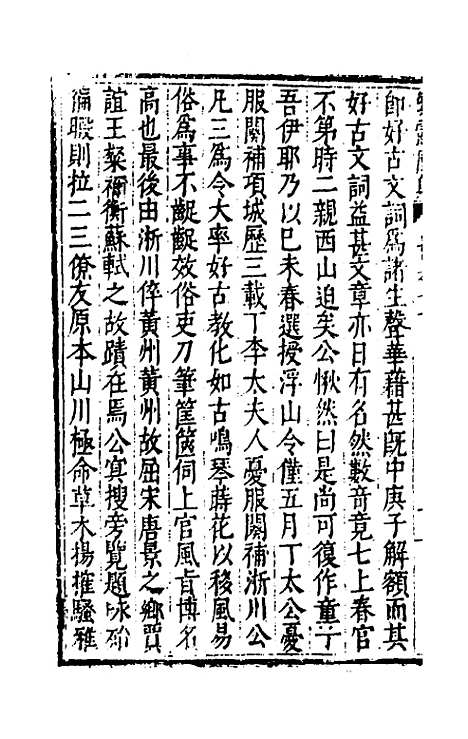 即好古文詞為諸生聲華藉甚既中庚子解額而其
好古文詞益甚文章亦日有名然數奇竟七上春官
不第時二親西山迫矣公愀然曰是尚可復作童子
吾伊耶乃以己未春選授浮山令僅五月丁太公憂
服闋補項城歷三載丁李太夫人憂服闋補淅川公
凡三為令大率好古教化如古鳴琴蒔花以移風易
俗為事不齪齪效俗吏刀筆筐篋伺上官風旨博名
高也最後由淅川倅黃州黃州故屈宋唐景之鄉賈
誼王粲禰衡蘇軾之故蹟在焉公冥搜旁覽題咏殆
徧暇則拉二三僚友原本山川極命草木揚搉騷雅